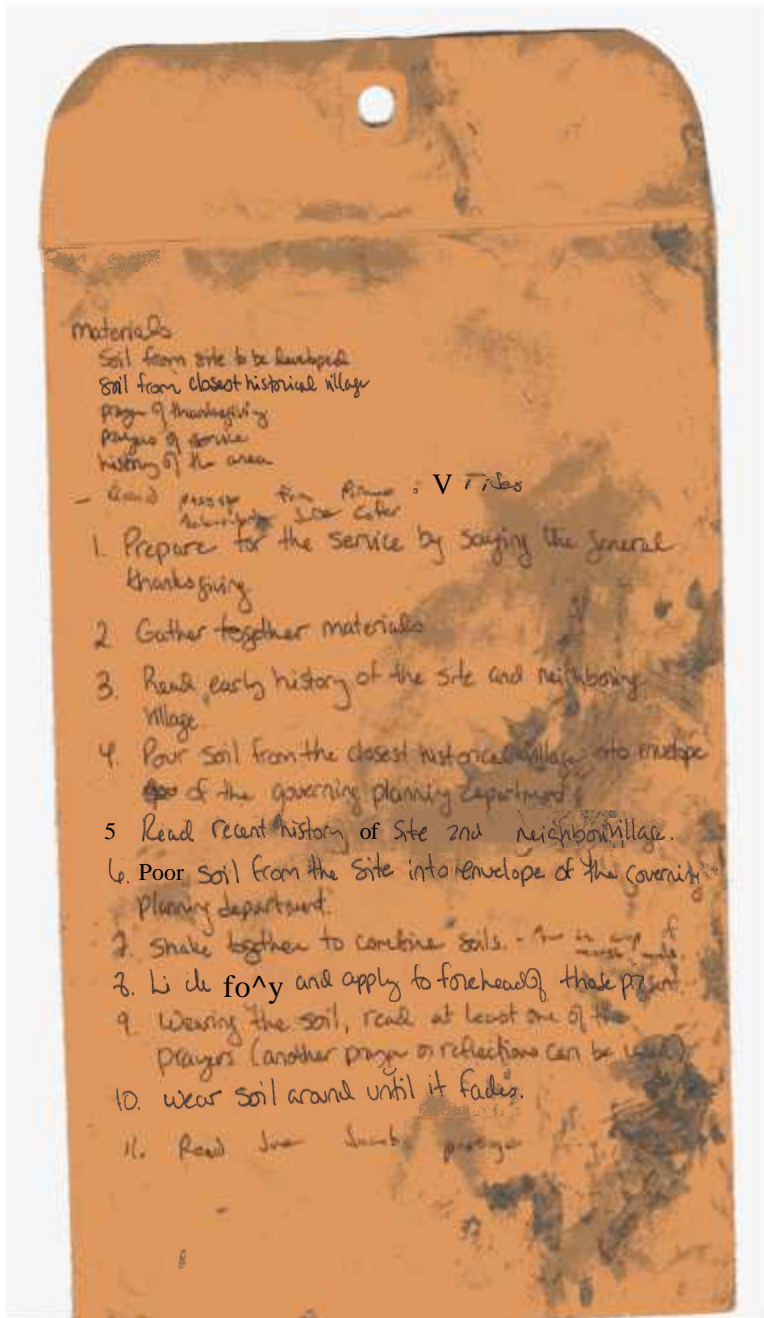 materials
Soil from site to be developed
Soil from closest historical village
prayer of thanksgiving
prayers of service
history of the area
- passage : V Tides
1. Prepare for the service by saying the general
thanksgiving
2 Gather together materials
3. Read early history of the site and neighboring
village.
4. Pour soil from the closest historical village into envelope
of the governing planning department.
5 Read recent history of Site 2nd neighborvillage.
6. Poor soil from the site into envelope of the governing
planning department.
7. Shake together to combine soils. -
8. fo^y and apply to forehead of those present
9. Wearing the soil, read at least one of the
prayers (another prayer or reflections can be used)
10. wear soil around until it fades.
11. Read passage